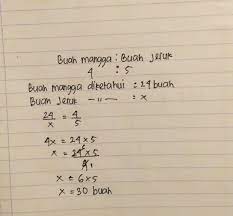 Buah mangga : Buah Jeruk
4 : 5
Buah mangga diketahui = 24 buah
Buah Jeruk —〃— = x
24/x = 4/5
4x = 24 x 5
x = 24⁶ x 5 / 4₁
x = 6 x 5
x = 30 buah